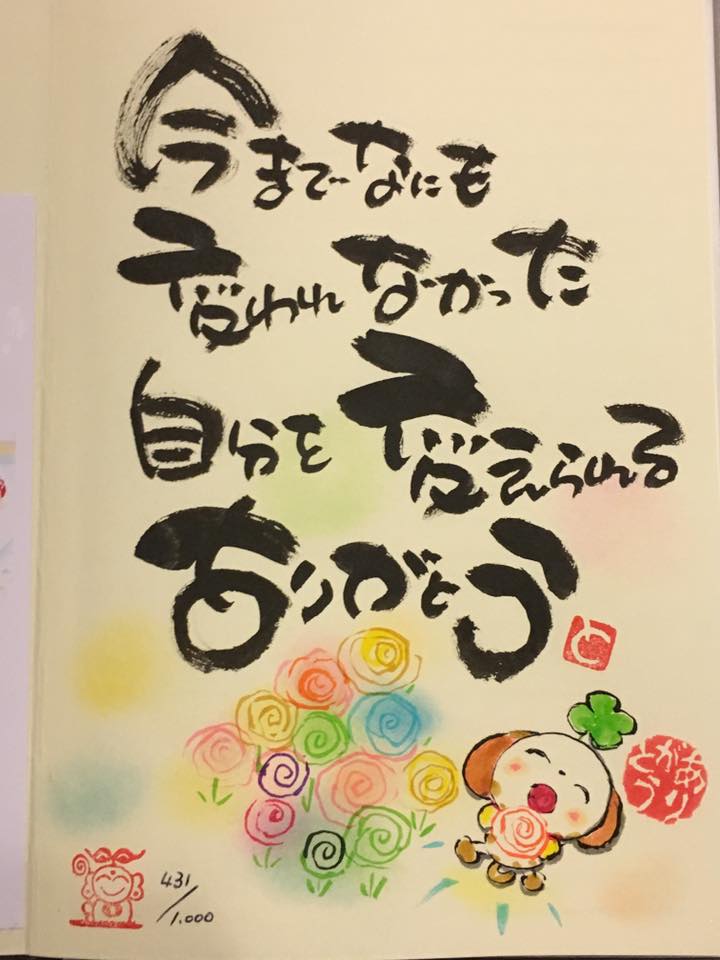 今までなにも
変われなかった
自分を変えられる
ありがとう
と
431/1.000